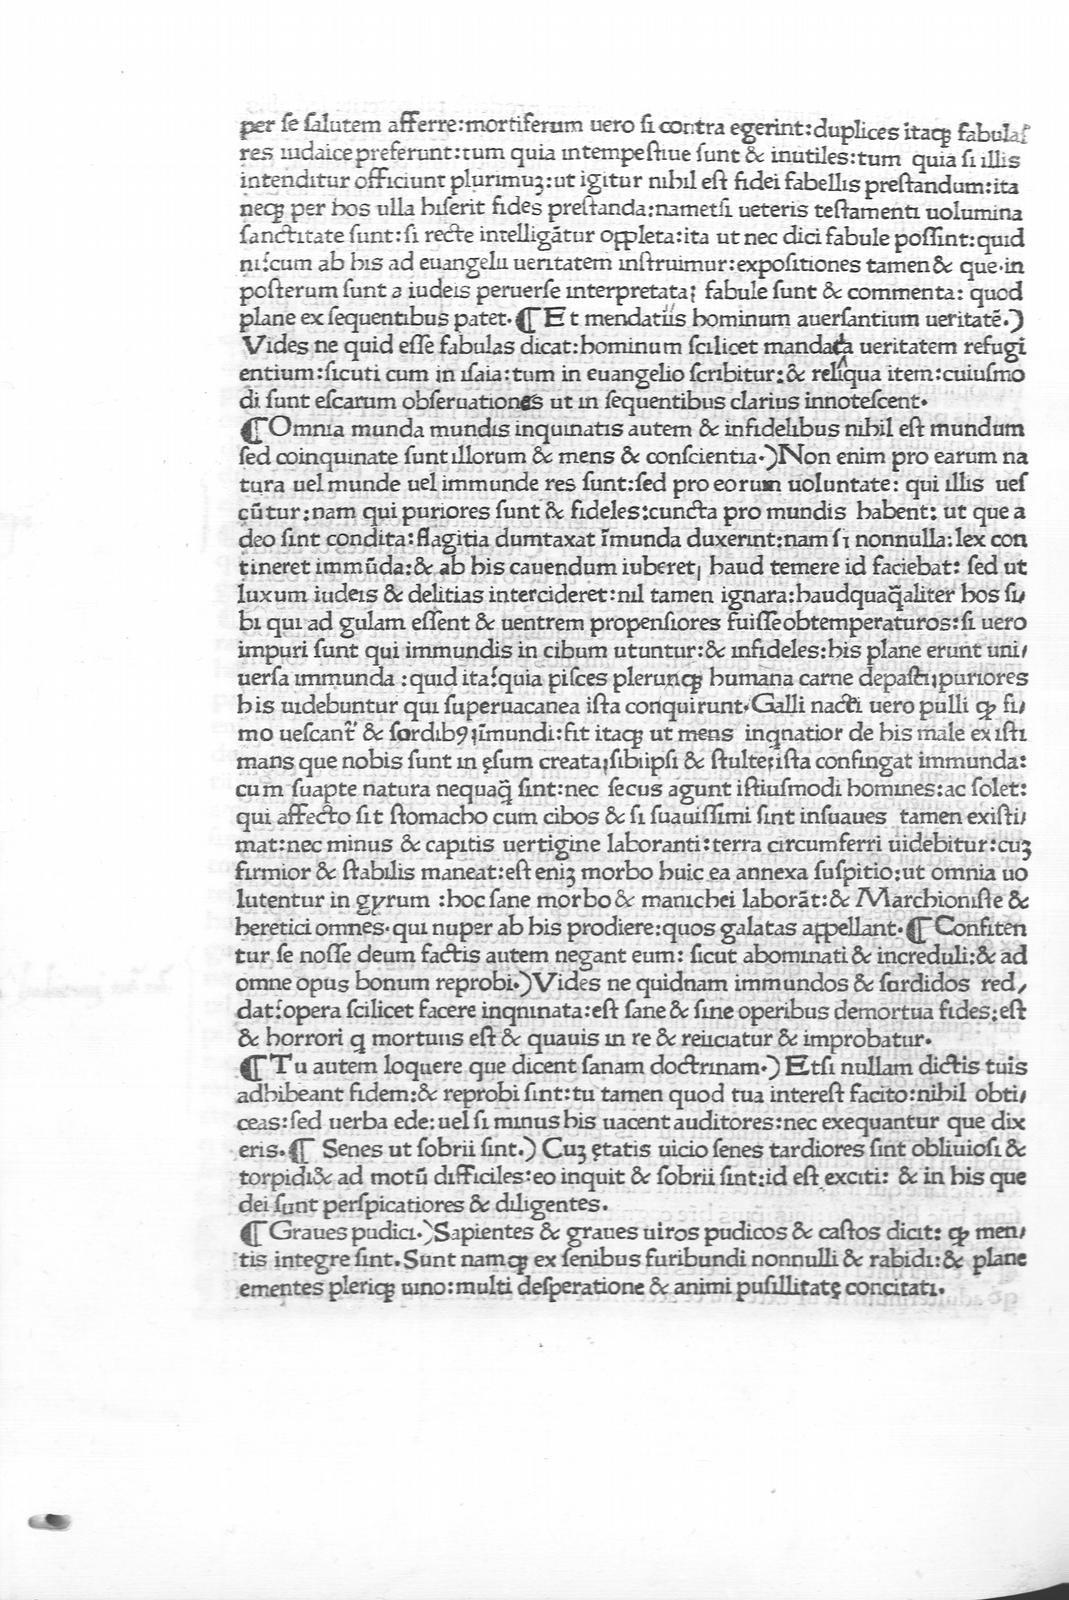 per ſe ſalutem afferre:mortiferum uero ſi contra egerint:duplices itaqꝫ fabulaſ
res iudaice preferunt:tum quia intempeſtiue ſunt & inutiles:tum quia ſi illis
intenditur officiunt plurimuꝫ:ut igitur nihil eſt fidei fabellis preſtandum:ita
neqꝫ per hos ulla hiſerit fides preſtanda:nametſi ueteris teſtamenti uolumina
ſanctitate ſunt:ſi recte intelligātur oppleta:ita ut nec dici fabule poſſint:quid
ni:cum ab his ad euangelii ueritatem inſtruimur:expoſitiones tamen & que·in
poſterum ſunt a iudeis peruerſe interpretata: fabule ſunt & commenta: quod
plane ex ſequentibus patet·¶Et mendatiis hominum auerſantium ueritatē·)
Vides ne quid eſſe fabulas dicat:hominum ſcilicet mandata ueritatem refugi
entium:ſicuti cum in iſaia:tum in euangelio ſcribitur:& reliqua item:cuiuſmo
di ſunt eſcarum obſeruationes ut in ſequentibus clarius innoteſcent·
¶Omnia munda mundis inquinatis autem & infidelibus nihil eſt mundum
ſed coinquinate ſunt illorum & mens & conſcientia·)Non enim pro earum na
tura uel munde uel immunde res ſunt:ſed pro eorum uoluntate: qui illis ueſ
cūtur:nam qui puriores ſunt & fideles:cuncta pro mundis habent: ut que a
deo ſint condita:flagitia dumtaxat īmunda duxerint:nam ſi nonnulla:lex con
tineret immūda:& ab his cauendum iuberet; haud temere id faciebat: ſed ut
luxum iudeis & delitias intercideret:nil tamen ignara:haudquaq̄aliter hos ſi/
bi qui ad gulam eſſent & uentrem propenſiores fuiſſe obtemperaturos:ſi uero
impuri ſunt qui immundis in cibum utuntur:& infideles:his plane erunt uni/
uerſa immunda :quid ita:quia piſces plerunqꝫ humana carne depaſti;puriores
his uidebuntur qui ſuperuacanea iſta conquirunt·Galli nacti uero pulli ꝙ fi/
mo ueſcant̄ & ſordibꝯ;īmundi:fit itaqꝫ ut mens inqnatior de his male exiſti
mans que nobis ſunt in ęſum creata;ſibiipſi & ſtulte;iſta confingat immunda:
cum ſuapte natura nequaq̄ ſint:nec ſecus agunt iſtiuſmodi homines:ac ſolet:
qui affecto ſit ſtomacho cum cibos & ſi ſuauiſſimi ſint inſuaues tamen exiſti/
mat:nec minus & capitis uertigine laboranti:terra circumferri uidebitur:cuꝫ
firmior & ſtabilis maneat:eſt eniꝫ morbo huic ea annexa ſuſpitio:ut omnia uo
lutentur in gyrum :hoc ſane morbo & manichei laborāt:& Marchioniſte &
heretici omnes·qui nuper ab his prodiere:quos galatas appellant·¶Confiten
tur ſe noſſe deum factis autem negant eum: ſicut abominati & increduli:& ad
omne opus bonum reprobi·)Vides ne quidnam immundos & ſordidos red/
dat:opera ſcilicet facere inqninata:eſt ſane & ſine operibus demortua fides:eſt
& horrori q mortuus eſt & quauis in re & reiiciatur & improbatur·
¶Tu autem loquere que dicent ſanam doctrinam·) Etſi nullam dictis tuis
adhibeant fidem:& reprobi ſint:tu tamen quod tua intereſt facito:nihil obti/
ceas:ſed uerba ede:uel ſi minus his uacent auditores:nec exequantur que dix
eris·¶ Senes ut ſobrii ſint·) Cuꝫ ętatis uicio ſenes tardiores ſint obliuioſi &
torpidi& ad motū difficiles:eo inquit & ſobrii ſint:id eſt exciti: & in his que
dei ſunt perſpicatiores & diligentes.
¶Graues pudici·)Sapientes & graues uiros pudicos & caſtos dicit: ꝙ men/
tis integre ſint.Sunt namqꝫ ex ſenibus furibundi nonnulli & rabidi:& plane
ementes pleriqꝫ uino:multi deſperatione & animi puſillitatę concitati.